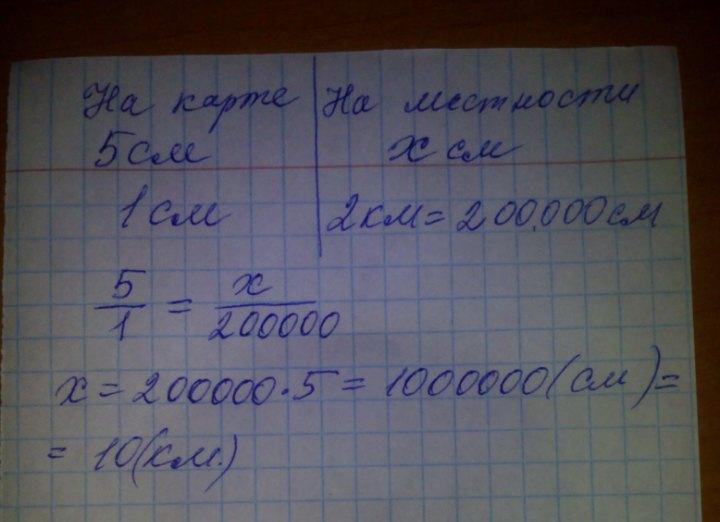 На карте | На местности
5см | x см
1см | 2км = 200.000см
5/1 = x/200000
x = 200000·5 = 1000000(см)=
= 10(км.)